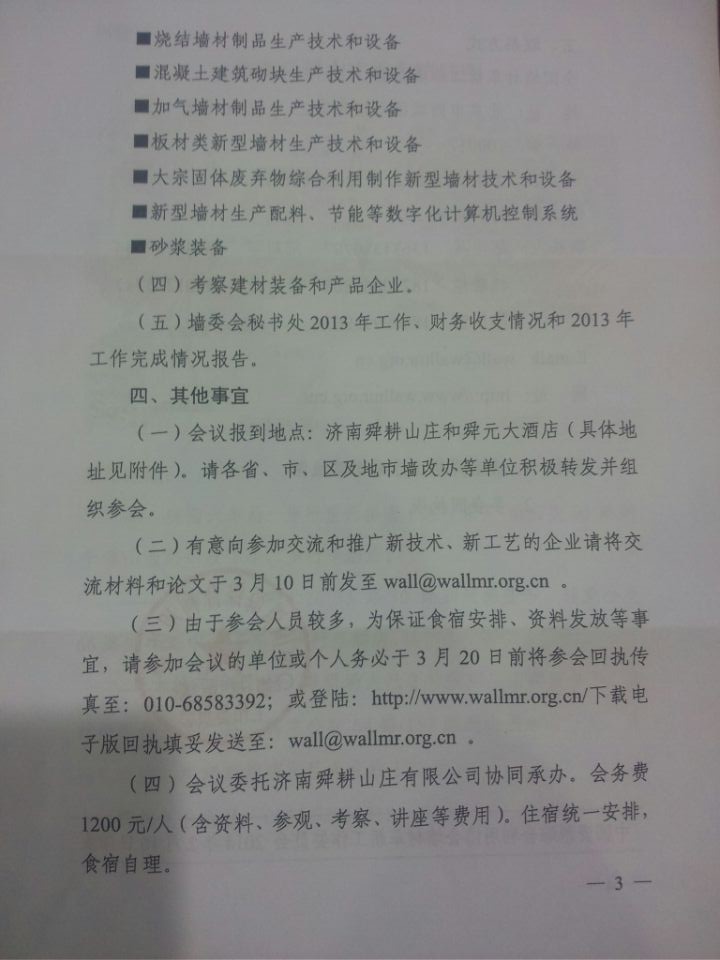 ■烧结墙材制品生产技术和设备
■混凝土建筑砌块生产技术和设备
■加气墙材制品生产技术和设备
■板材类新型墙材生产技术和设备
■大宗固体废弃物综合利用制作新型墙材技术和设备
■新型墙材生产配料、节能等数字化计算机控制系统
■砂浆装备
（四）考察建材装备和产品企业。
（五）墙委会秘书处 2013 年工作、财务收支情况和 2013 年
工作完成情况报告。
四、其他事宜
（一）会议报到地点：济南舜耕山庄和舜元大酒店（具体地
址见附件）。请各省、市、区及地市墙改办等单位积极转发并组
织参会。
（二）有意向参加交流和推广新技术、新工艺的企业请将交
流材料和论文于 3 月 10 日前发至 wall@wallmr.org.cn 。
（三）由于参会人员较多，为保证食宿安排、资料发放等事
宜，请参加会议的单位或个人务必于 3 月 20 日前将参会回执传
真至：010-68583392；或登陆：http://www.wallmr.org.cn/下载电
子版回执填妥发送至：wall@wallmr.org.cn 。
（四）会议委托济南舜耕山庄有限公司协同承办。会务费
1200 元/人（含资料、参观、考察、讲座等费用）。住宿统一安排，
食宿自理。
— 3 —